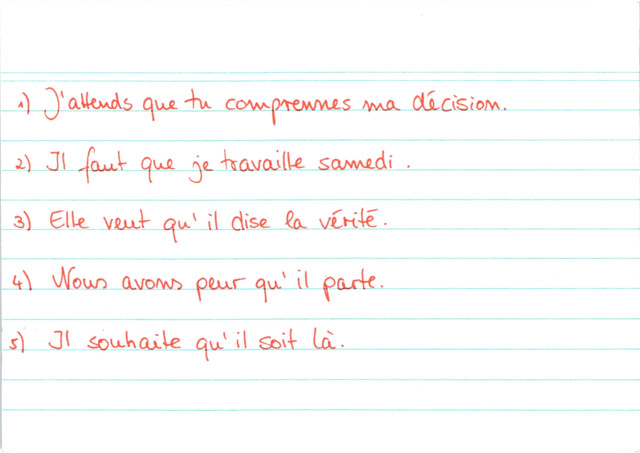 1) J'attends que tu comprennes ma décision.
2) Il faut que je travaille samedi.
3) Elle veut qu'il dise la vérité.
4) Nous avons peur qu'il parte.
5) Il souhaite qu'il soit là.